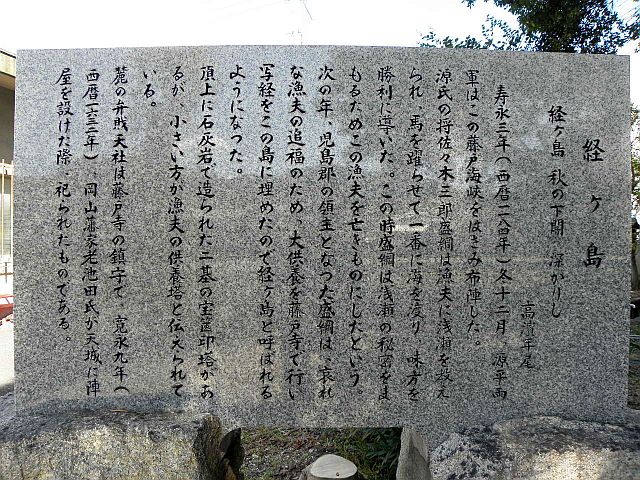 経ヶ島
経ヶ島 秋の下闇 深かりし
高濱年尾
寿永三年(西暦一一八四年)冬十二月 源平両
軍は、この藤戸海峡をはさみ布陣した。
源氏の将佐々木三郎盛綱は漁夫に浅瀬を教え
られ、馬を躍らせて一番に海を渡り、味方を
勝利に導いた。この時盛綱は浅瀬の秘密をま
もるためこの漁夫を亡きものにしたという。
次の年、児島郡の領主となった盛綱は、哀れ
な漁夫の追福のため、大供養を藤戸寺で行い
写経をこの島に埋めたので経ヶ島と呼ばれる
ようになった。
頂上に石灰岩で造られた二基の宝篋印塔があ
るが、小さい方が漁夫の供養塔と伝えられて
いる。
麓の弁財天社は藤戸寺の鎮守で 寛永九年(
西暦一六三二年)、岡山藩家老池田氏が天城に陣
屋を設けた際、祀られたものである。